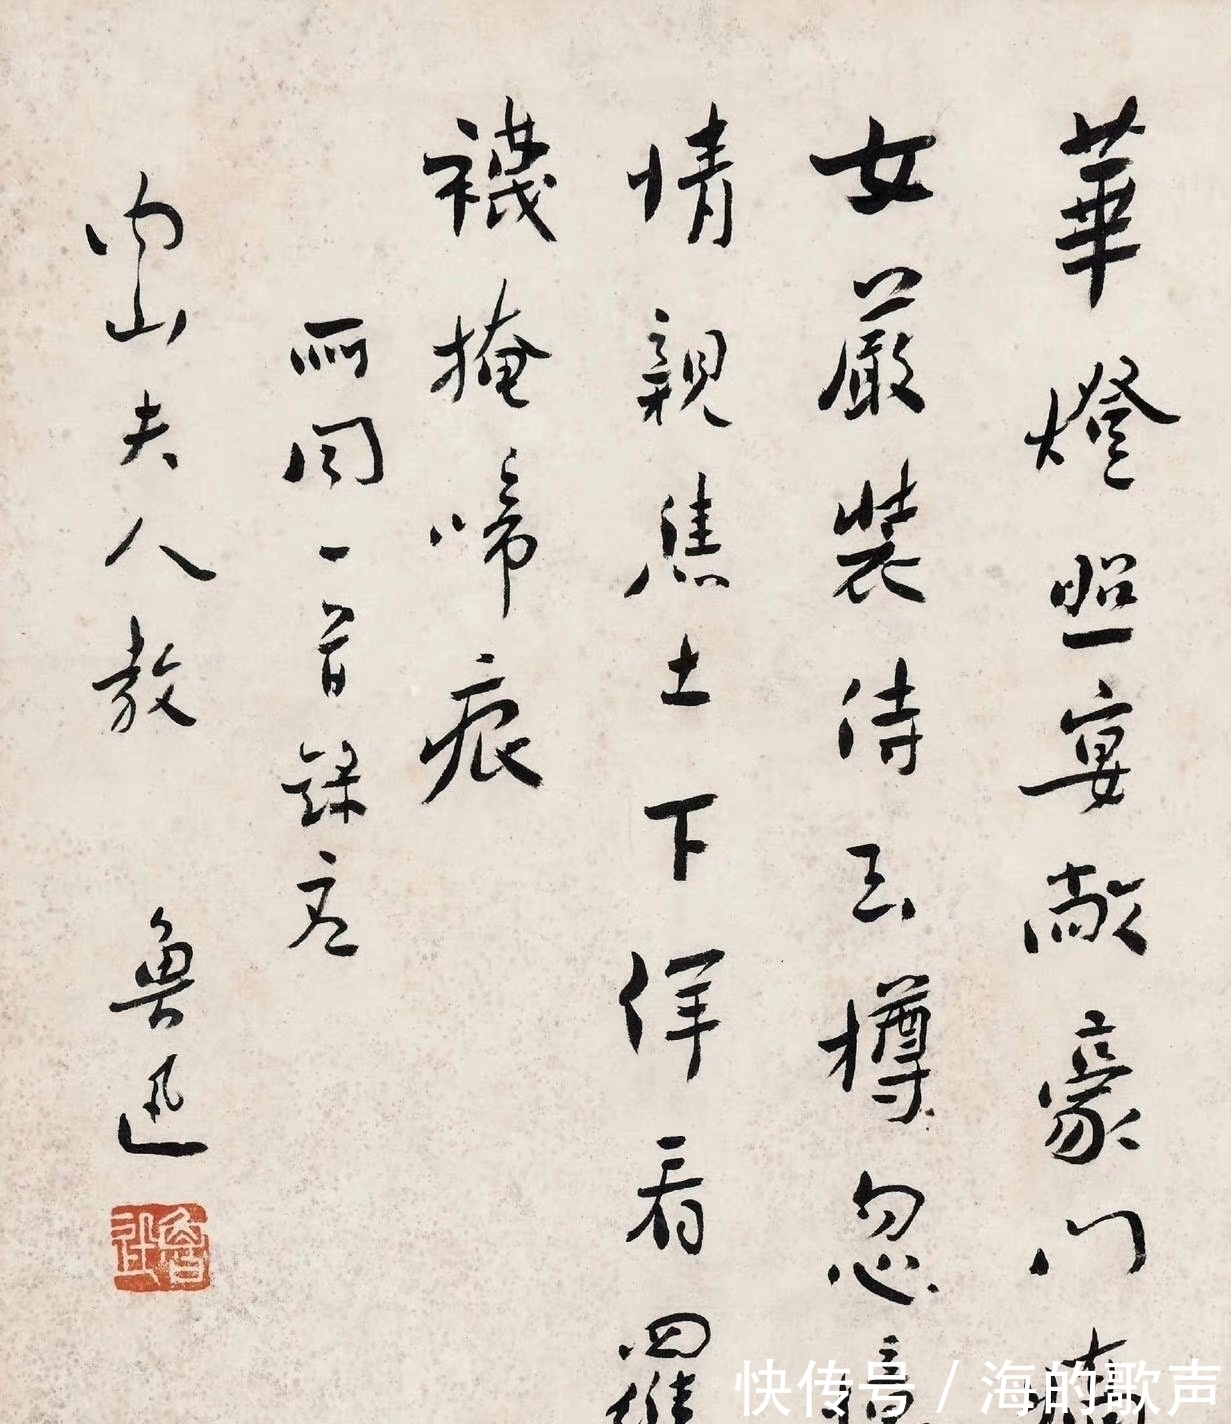 華燈照宴敞豪門
女嚴裝侍玉樽忽
情親焦土下佯看羅
襪掩啼痕
所聞一首錄应
内山夫人教
魯迅
魯迅
快传号 / 海的歌声